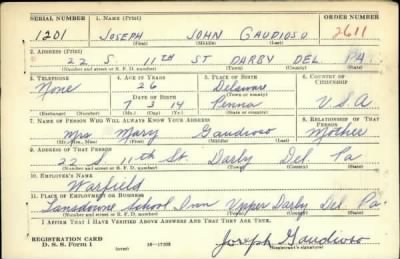 SERIAL NUMBER 1. NAME (Print) ORDER NUMBER
1201 JOSEPH JOHN GAUDIOSO 2611
(First) (Middle) (Last)
2. ADDRESS (Print)
22 S. 11TH ST DARBY DEL PA.
(Number and street or R. F. D. number) (Town) (County) (State)
3. TELEPHONE 4. AGE IN YEARS 5. PLACE OF BIRTH 6. COUNTRY OF CITIZENSHIP
None 26 Delaware
DATE OF BIRTH (Town or county)
7 3 14 Penna U.S.A
(Exchange) (Number) (Mo.) (Day) (Yr.) (State or country)
7. NAME OF PERSON WHO WILL ALWAYS KNOW YOUR ADDRESS 8. RELATIONSHIP OF THAT PERSON
Mrs Mary Gaudioso Mother
(Mr., Mrs., Miss) (First) (Middle) (Last)
9. ADDRESS OF THAT PERSON
22 S 11th St. Darby Del. Pa
(Number and street or R. F. D. number) (Town) (County) (State)
10. EMPLOYER'S NAME
Warfields
11. PLACE OF EMPLOYMENT OR BUSINESS
Lansdowne School Inn Upper Darby Del Pa.
(Number and street or R. F. D. number) (Town) (County) (State)
I AFFIRM THAT I HAVE VERIFIED ABOVE ANSWERS AND THAT THEY ARE TRUE.
REGISTRATION CARD
D. S. S. Form 1 (over) 16—17105 Joseph Gaudioso
(Registrant's signature)